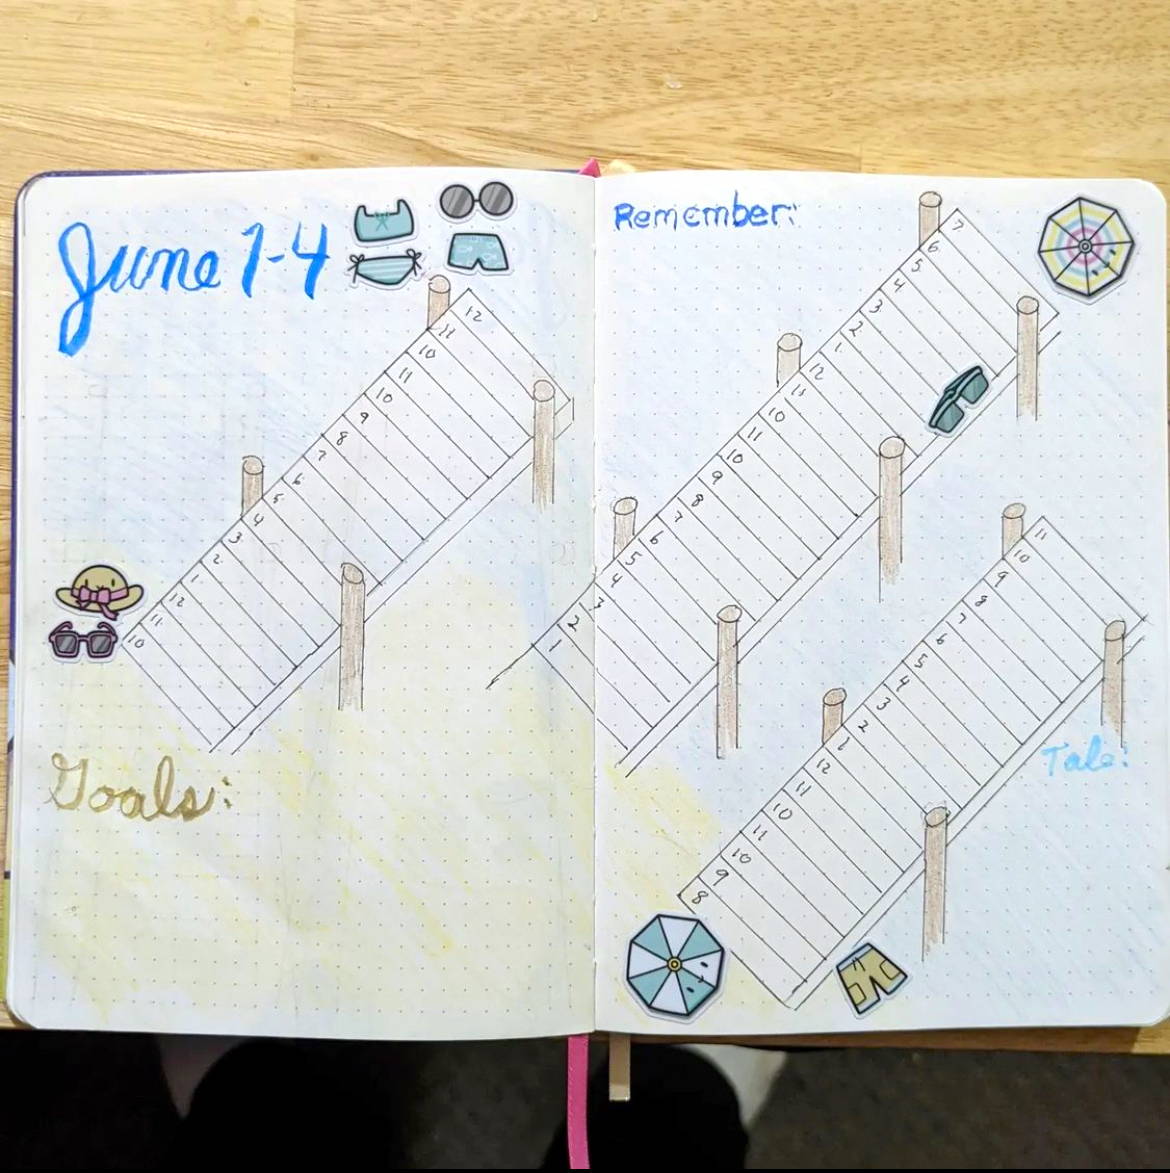 June 1-4
12
11
10
11
10
9
8
7
6
5
4
3
2
1
12
11
10
Goals:
Remember:
7
6
5
4
3
2
1
12
11
10
11
10
9
8
7
6
5
4
3
2
1
11
10
9
8
7
6
5
4
3
2
1
12
11
10
11
10
9
8
Tale: